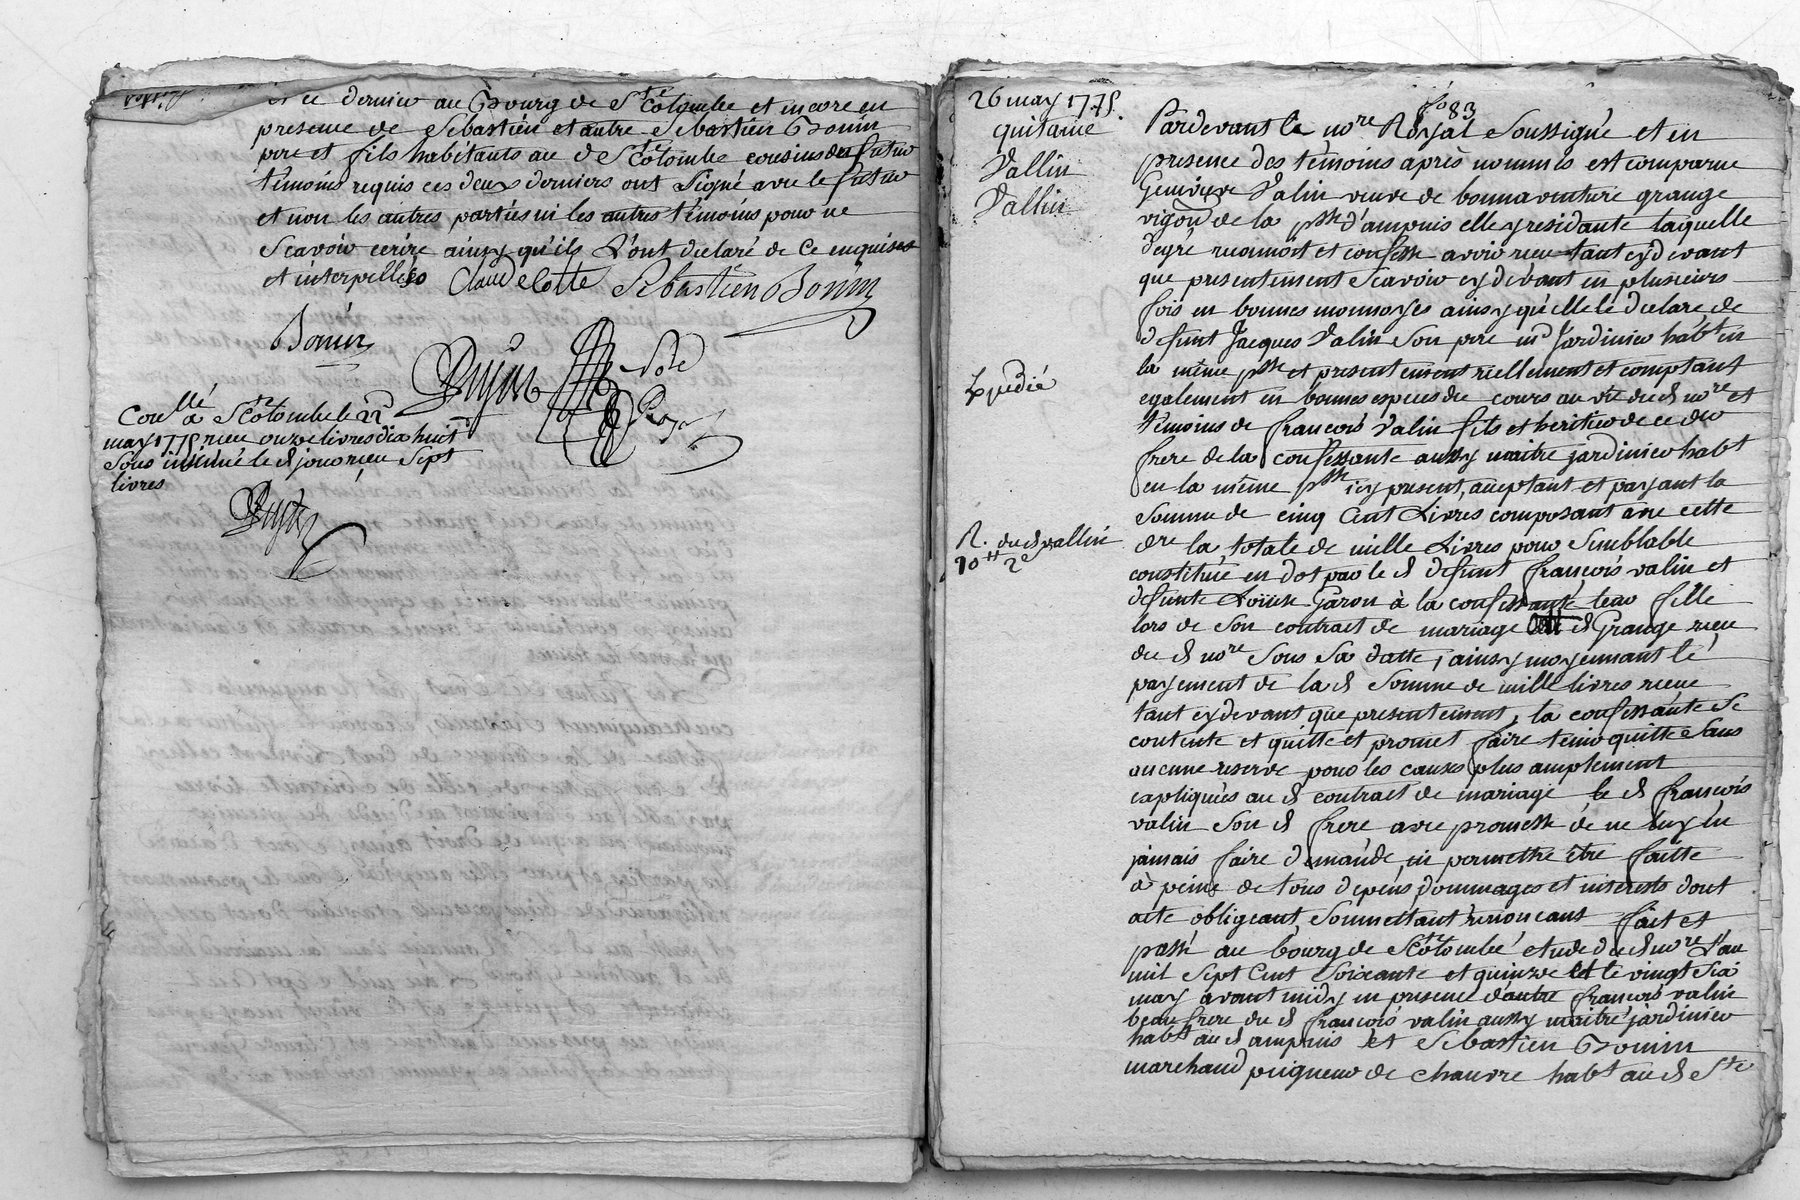 et ce dernier au Bourg de Ste Colombe et encore en
presence de Sebastien et autre Sebastien Bonin
pere et fils habitants au d Ste Colombe cousins du futur
témoins requis ces deux derniers ont signé avec le futur
et non les autres parties ni les autres témoins pour ne
scavoir ecrire ainsy qu'ils l'ont declaré de ce enquises
et interpellés Claude Cotte Sebastien Bonin
Bonin
Nore
Royal
Coellé à Ste Colombe le 22
may 1775 reçu onze livres dix huit
sous insinué le d jour reçu sept
livres
26 may 1775.
quitance
Vallin
Vallin
Expedié
R. du d vallin
10tt 2s
fo 83
Pardevant le nore Royal soussigné et en
presence des témoins après nommés est comparue
Genevieve Valin veuve de bonnaventure grange
vigon de la psse d'ampuis elle y residante laquelle
degré reconnoit et confesse avoir reçu tant cydevant
que presentement scavoir cydevant en plusieurs
fois en bonnes monnoyes ainsy qu'elle le declare de
defunt Jacques Valin son pere md Jardinier habt en
la même psse et presentement reellement et comptant
egalement en bonnes especes du cours au vû du d nore et
témoins de françois Valin fils et heritier de ce der
frere de la confessante aussy maitre jardinier habt
en la même psse icy present, acceptant et payant la
somme de cinq Cent Livres composant avec cette
dere la totale de mille Livres pour semblable
constituée en dot par le d defunt françois valin et
defunte Loüise Garon à la confessante leur fille
lors de son contract de mariage d Grange reçu
du d nore sous sa datte, ainsy moyennant le
payement de la d somme de mille livres reçue
tant cydevant que presentement, la confessante se
contente et quitte et promet faire tenir quitte sans
aucune reserve pour les causes plus amplement
expliquées au d contract de mariage le d françois
valin son d frere avec promesse de ne luy en
jamais faire demande, ni permettre être faitte
à peine de tous depens, dommages et interests dont
acte obligeant, soumettant renoncant fait et
passé au bourg de Ste Colombe etude du d nore l'an
mil sept Cent soixante et quinze et le vingt six
may avant midy en presence d'autre françois valin
beau frere du d françois valin aussy maitre jardinier
habt au d ampuis et Sebastien Bonin
marchand peigneur de chanvre habt au d Ste